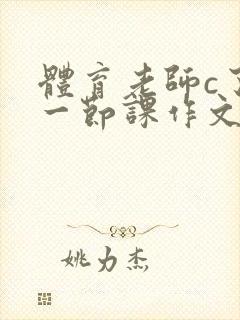 體育老師c
一節課作文
姚力杰